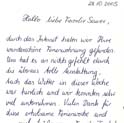 28.10.2005
Hallo Liebe Familie Sauer,
durch das Internet haben wir Ihre
wunderschöne Ferienwohnung gefunden.
Uns hat es an nichts gefehlt durch
die überaus tolle Ausstattung.
Auch das Wetter in dieser Woche
war herrlich und wir konnten sehr
viel unternehmen. Vielen Dank für
diese erholsame Ferienwoche und